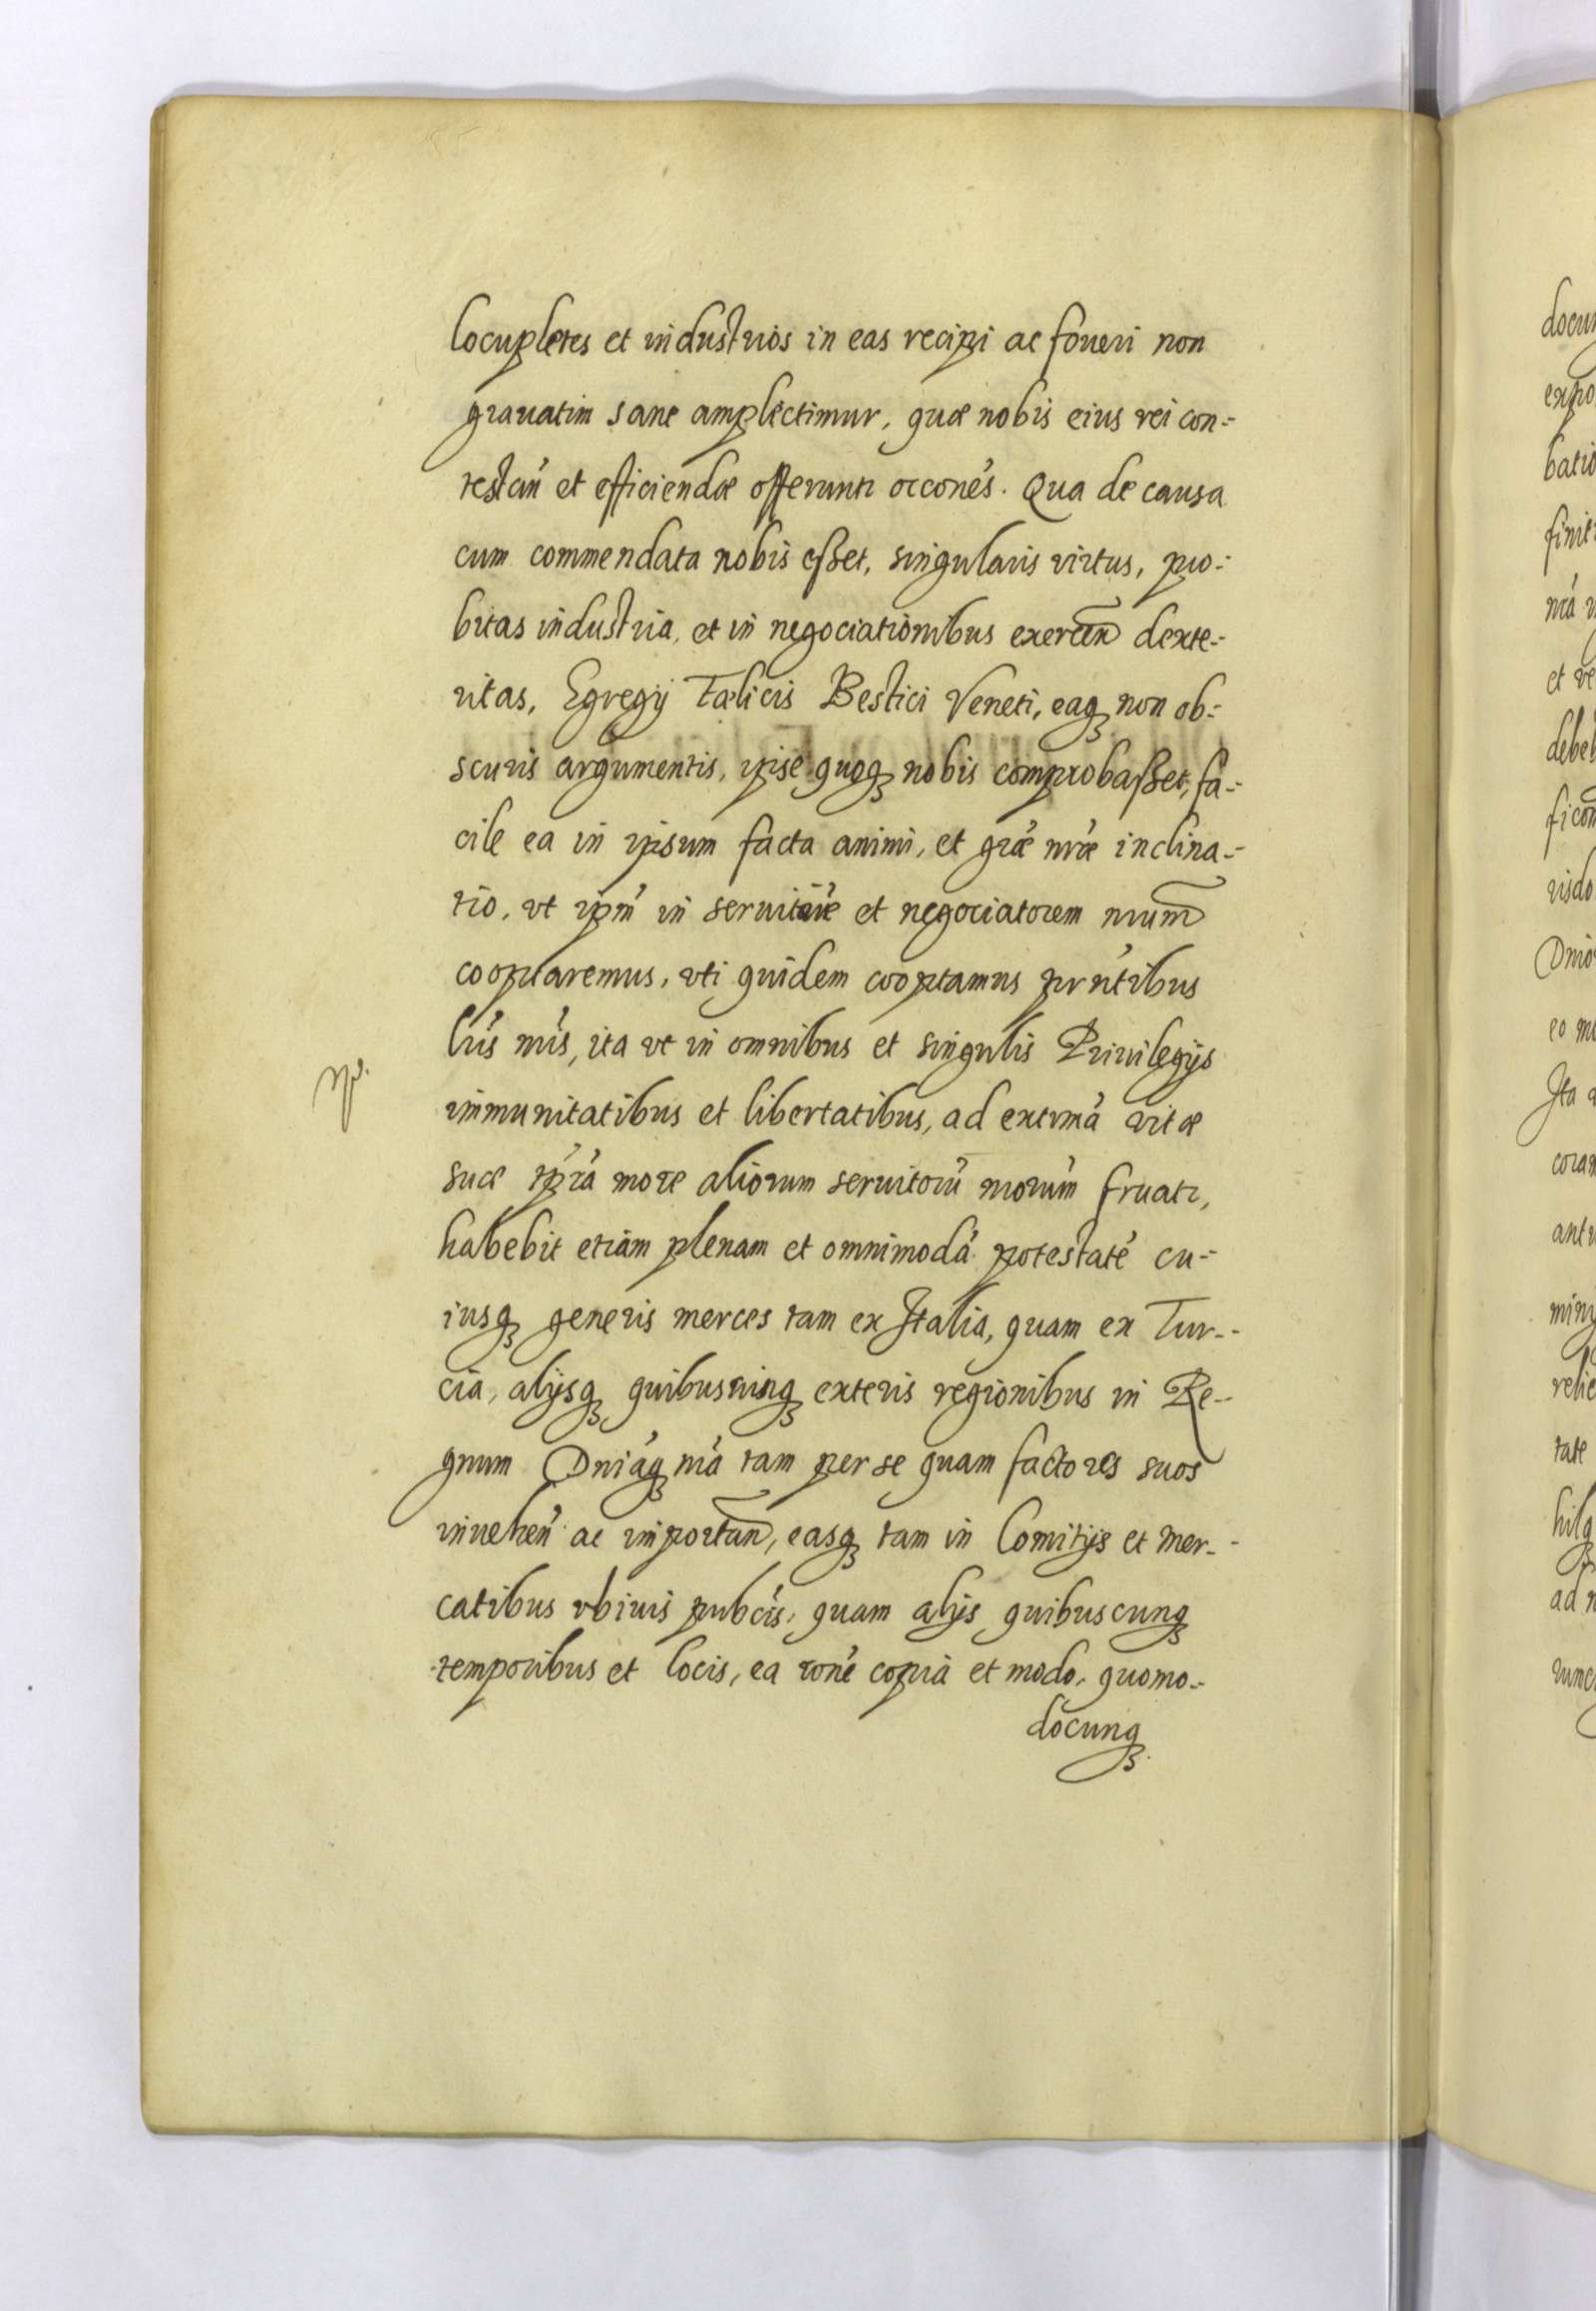 locupletes et industrios in eas recipi ac foueri non
grauatim sane amplectimur, quæ nobis eius rei con-
testan̄ et efficiendæ offerunt̄ occōnes. Qua de causa
cum commendata nobis eßet, singularis virtus, pro-
bitas industria, et in negociationibus exercen̄ dexte-
ritas, Egregij Fælicis Bestici Veneti, eaq₃ non ob-
scuris argumentis, ipse quoq₃ nobis comprobaßet, fa-
cile ea in ipsum facta animi, et grāe nrāe inclina-
tio, vt ipm̄ in seruitorē et negociatorem nrum̄
cooptaremus, vti quidem cooptamus prn̄tibus
lrīs nrīs, ita vt in omnibus et singulis Priuilegijs
immunitatibus et libertatibus, ad extremā vitæ
suæ tp̄ra more aliorum seruitorū nrorum̄ fruatr,
habebit etiam plenam et omnimodā potestatē cu-
iusq₃ generis merces tam ex Italia, quam ex Tur-
cia, alijsq₃ quibusuing₃ exteris regionibus in Re-
gnum Dniāq₃ nrā tam per se quam factores suos
inuehen̄ ac importan̄, easq₃ tam in Comitijs et mer-
catibus vbiuis pubcīs, quam alijs quibuscunq₃
temporibus et locis, ea ronē copia et modo, quomo-
docunq₃